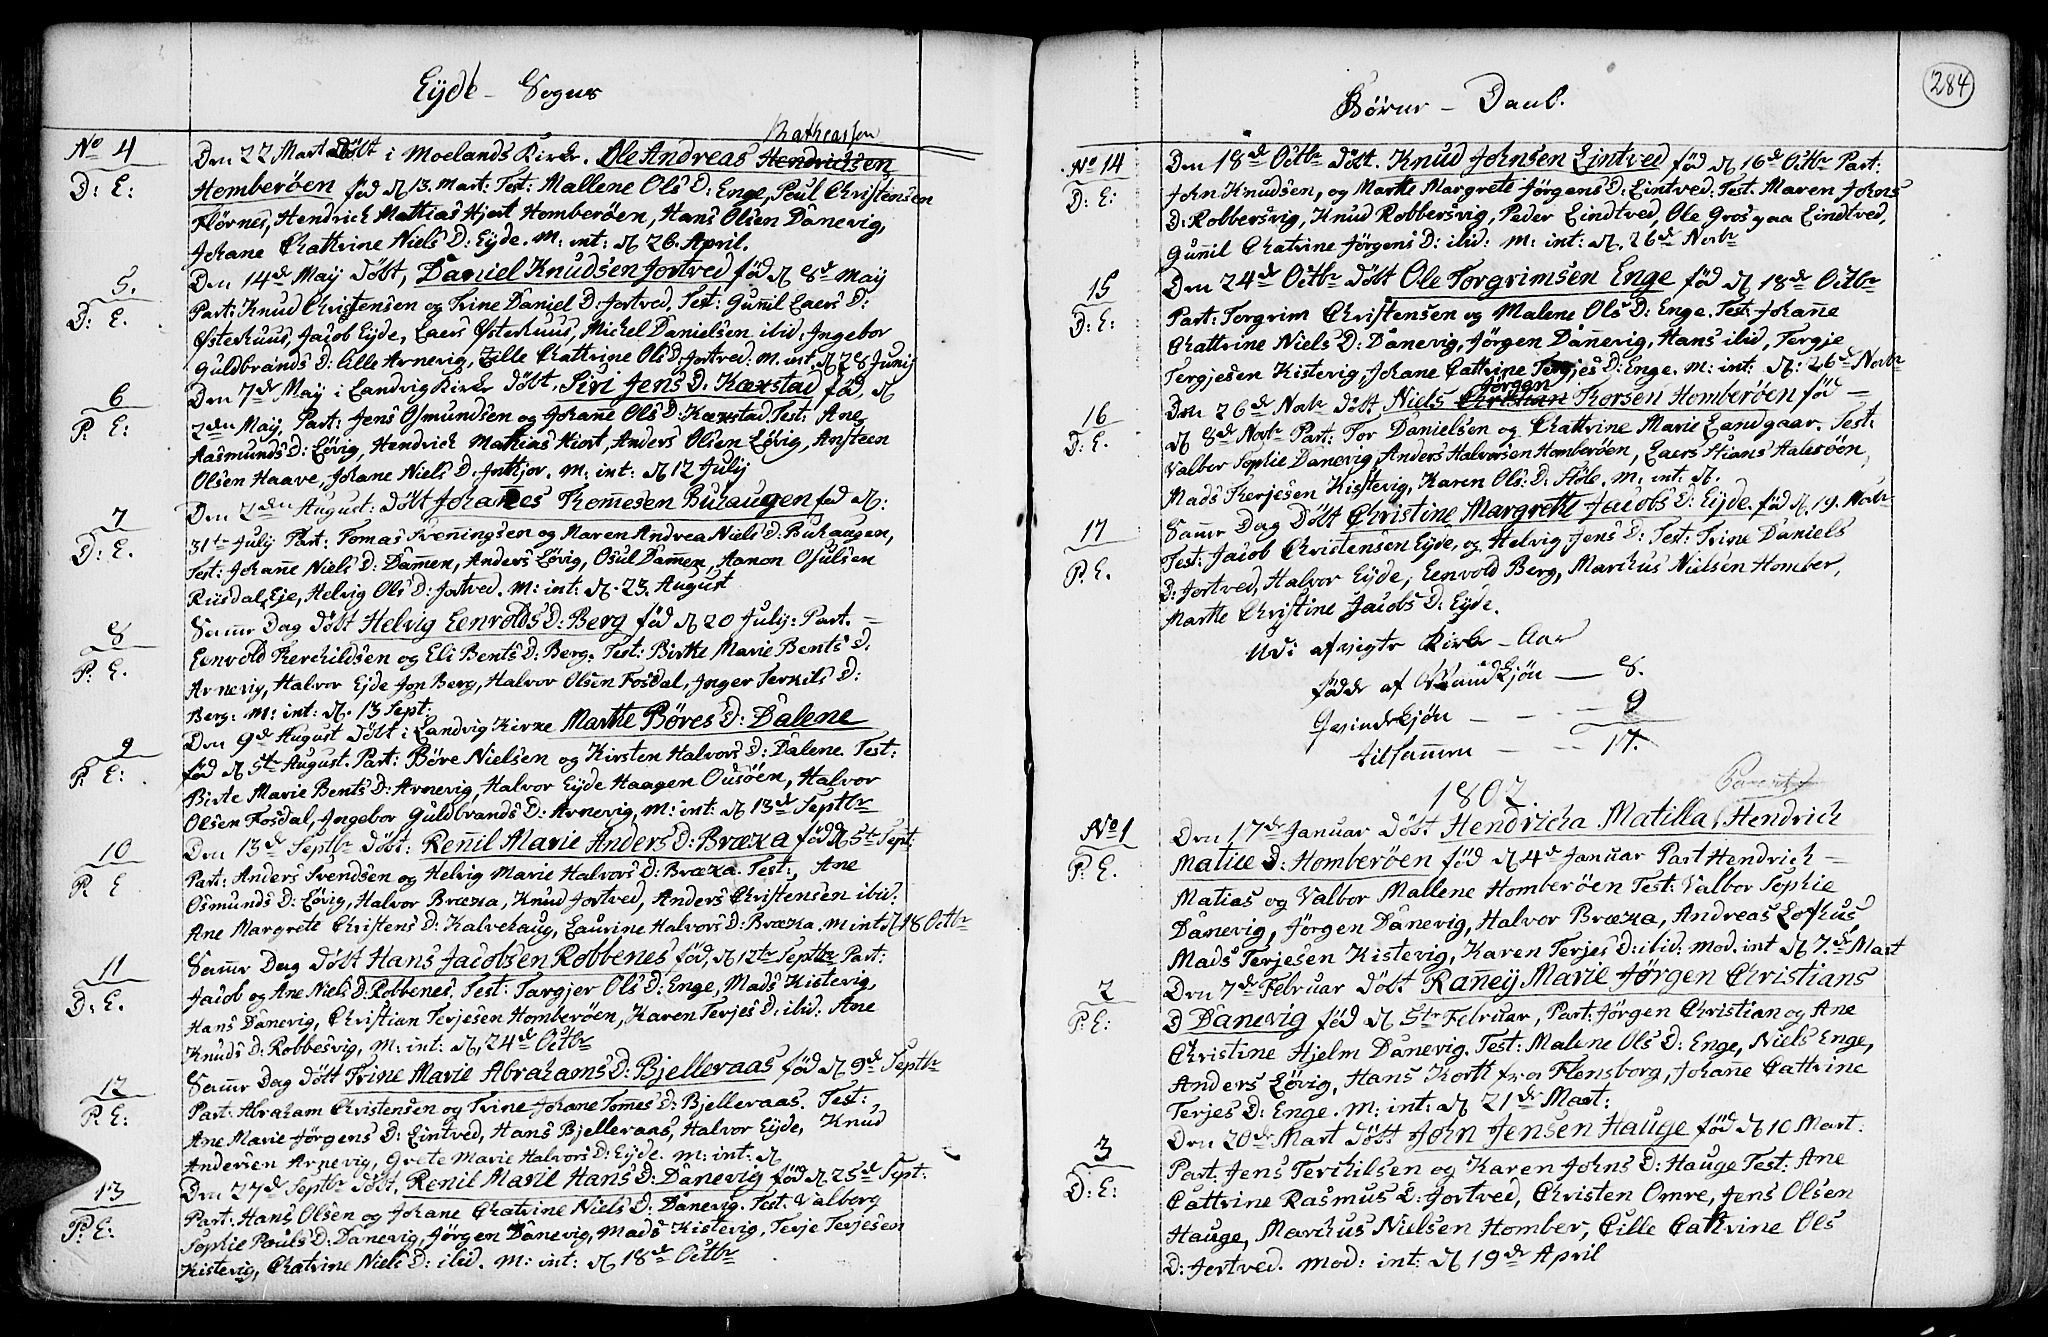 Eyde - Sogns
Matheassen
No 4
D: E:
Den 22 Mart: Döbt i Moelands Kirke. Ole Andreas Hendrichsen
Homberöen fød d. 13. Mart: Test: Mallene Ols D: Enge, Poul Christensen
Flörnes, Hendrich Mathias Hjort Homberöen, Hans Olsen Danevig,
Johane Chattrine Niels D: Eyde. M: int: d. 26. April.
5.
D: E.
Den 14de May Döbt, Daniel Knudsen Jortved fød d. 8de May
Part: Knud Christensen og Trine Daniel D: Jortved. Test: Gunnil Laers D:
Østerhuus, Jacob Eyde, Laers Østerhuus, Michel Danielsen ibid, Ingebor
Guldbrands D: lille Arnevig, Cille Chattrine Ols D: Jortved. M. int. d. 28 Junij
6
P: E:
Den 7de May i Landvig Kirke Döbt, Siri Jens D. Kaxstad fød, d.
2den May, Part: Jens Osmundsen og Johane Ols D: Kaxstad. Test: Ane
Aasmunds D: Lövig, Hendrich Mathias Hiort, Anders Olsen Lövig, Ansteen
Olsen Haave, Johane Niels D: Inthjor. M: int: d. 12 Julij
7
D: E.
Den 2den August: Döbt Johanes Thomesen Buhaugen fød d.
31te July Part: Tomas Sveningsen og Maren Andrea Niels D: Buhaugen,
Test: Johane Niels D: Dammen, Anders Lövig, Osul Dammen, Aanon Osulsen
Riisdal, Eje, Helvig Ols D: Jortved. M: int: d. 23. August
8
P. E.
Same Dag Döbt Helvig Eenvolds D: Berg fød d. 20 Julij: Part. =
Eenvold Therchildsen og Eli Bents D: Berg. Test: Birte Marie Bents D:
Arnevig, Halvor Eyde Jon Berg, Halvor Olsen Fosdal, Inger Terkils D:
Berg: M: int: d. 13 Sept:
9
P: E:
Den 9de August Döbt i Landvig Kirke Marthe Böres D: Dalene
fød d. 5te August. Part: Böre Nielsen og Kirsten Halvors D: Dalene. Test:
Birte Marie Bents D: Arnevig, Halvor Eyde Haagen Ousöen, Halvor
Olsen Fosdal, Ingebor Guldbrands D: Arnevig, M: int: d. 13de Septbr
10
P. E
Den 13de Septbr Döbt: Renil Marie Anders D: Bræxa fød d. 5te Sept:
Part: Anders Svendsen og Helvig Marie Halvors D: Bræxa. Test: Ane
Osmunds D: Lövig, Halvor Bræxa, Knud Jortved, Anders Christensen ibid:
Ane Margrete Christens D: Kalvehaug, Laurine Halvors D: Bræxa. M int d. 18 Octbr
11
D: E.
Same Dag Döbt Hans Jacobsen Robbenes fød, d. 12te Septbr Part:
Jacob og Ane Niels D: Robbenes. Test: Targjer Ols D: Enge, Mads Kistevig,
Hans Danevig, Christian Terjesen Homberöen, Karen Terjes D: ibid: Ane
Knuds D: Robbesvig, M: int: d. 24de Octbr
12
P: E:
Same Dag Döbt Trine Marie Abrahams D: Bjelleraas fød d. 9de Septbr
Part: Abraham Christensen og Trine Johane Tomes D: Bjelleraas. Test:
Ane Marie Jörgens D: Lintved, Hans Bjelleraas, Halvor Eyde, Knud
Andersen Arnevig, Grete Marie Halvors D: Eyde. M: int: d.
13
P: E:
Den 27de Septbr Döbt, Renil Marie Hans D: Danevig fød d. 25de Sept:
Part: Hans Olsen og Johane Chatrine Niels D: Danevig. Test: Valborg
Sophie Pouls D: Danevig, Jörgen Danevig, Mads Kistevig, Terje Terjesen
Kistevig, Chatrine Niels D: ibid. M: int: d. 18de Octbr
Börne - Daab.
284
No 14
D: E:
Den 18de Octbr Döbt. Knud Johnsen Lintved fød d. 16de Octbr Part:
John Knudsen, og Marthe Margrete Jörgens D: Lintved: Test: Maren Johns
D: Robbersvig, Knud Robbersvig, Peder Lindtved, Ole Grosgaa Lindtved,
Gunil Chatrine Jörgens D: ibid: M: int: d. 26de Novbr
15
D: E:
Den 24de Octbr Döbt Ole Torgrimsen Enge fød d. 18de Octbr
Part: Torgrim Christensen og Malene Ols D: Enge. Test: Johane
Chattrine Niels D: Danevig, Jörgen Danevig, Hans ibid, Tergje
Tergjesen Kistevig, Johane Cattrine Terjes D: Enge. M: int: d. 26de Novbr
16
D: E.
Jörgen
Den 26de Novbr Döbt Niels Christian Torsen Homberöen fød =
d. 8de Novbr Part: Tor Danielsen og Chattrine Marie Landgaar. Test:
Valbor Sophie Danevig, Anders Halvorsen Homberöen, Laers Stians Halesöen,
Mads Therjesen Kistevig, Karen Ols: D: Støle. M: int: d.
17
P. E.
Same Dag Döbt Christine Margrethe Jacobs D: Eyde. fød d. 19. Novbr
Test: Jacob Christensen Eyde, og Helvig Jens D: Test: Trine Daniels
D: Jortved, Halvor Eyde, Eenvold Berg, Marchus Nielsen Homber,
Marthe Christine Jacobs D: Eyde.
Udi afvigte Kirke-Aar
fødde af Mandkjøn — 8.
Qvindekjøn — — 9
tilsamen — — 17.
1802
No 1
P. E.
Den 17de Januar Döbt Hendricha Matilla, Hendrich
Matice D: Homberöen fød d. 4de Januar Part Hendrich =
Matias og Valbor Mallene Homberöen Test: Valbor Sophie
Danevig, Jörgen Danevig, Halvor Bræxa, Andreas Lofhus
Mads Terjesen Kistevig, Karen Terjes D: ibid. mod. int d. 7de Mart
2
P: E:
Den 7de Februar Döbt Raney Marie Jörgen Christians
D Danevig fød d. 5te Februar, Part: Jörgen Christian og Ane
Christine Hjelm Danevig. Test: Malene Ols D: Enge, Niels Enge,
Anders Lövig, Hans Korth fra Flensborg, Johane Cattrine
Terjes D: Enge. M: int: d. 21de Mart:
3
D: E:
Den 20de Mart Döbt John Jensen Hauge fød d. 10 Mart:
Part: Jens Terchilsen og Karen Johns D: Hauge Test: Ane
Cattrine Rasmus D: Jortved, Christen Omre, Jens Olsen
Hauge, Marchus Nielsen Homber, Cille Cathrine Ols
D: Jortved. mod: int: d. 19de April